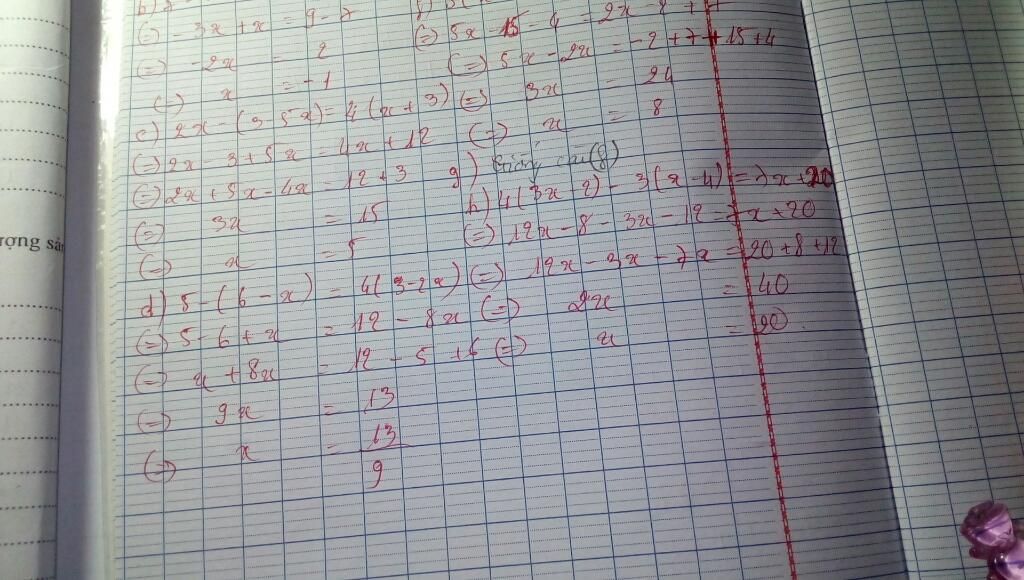 (=) -3x + x = 9 - 7
(=) -2x = 2
(=) x = -1
c) 2x - (3 - 5x) = 4(x + 3)
(=) 2x - 3 + 5x = 4x + 12
(=) 2x + 5x - 4x = 12 + 3
(=) 3x = 15
(=) x = 5
d) 5 - (6 - x) = 4(3 - 2x)
(=) 5 - 6 + x = 12 - 8x
(=) x + 8x = 12 - 5 + 6
(=) 9x = 13
(=) x = 13/9
(=) 5x - 15 - 4 = 2x - 2 + 7
(=) 5x - 2x = -2 + 7 + 15 + 4
(=) 3x = 24
(=) x = 8
g) Giống câu (f)
h) 4(3x - 2) - 3(x - 4) = 7x + 20
(=) 12x - 8 - 3x - 12 = 7x + 20
(=) 12x - 3x - 7x = 20 + 8 + 12
(=) 2x = 40
(=) x = 20.